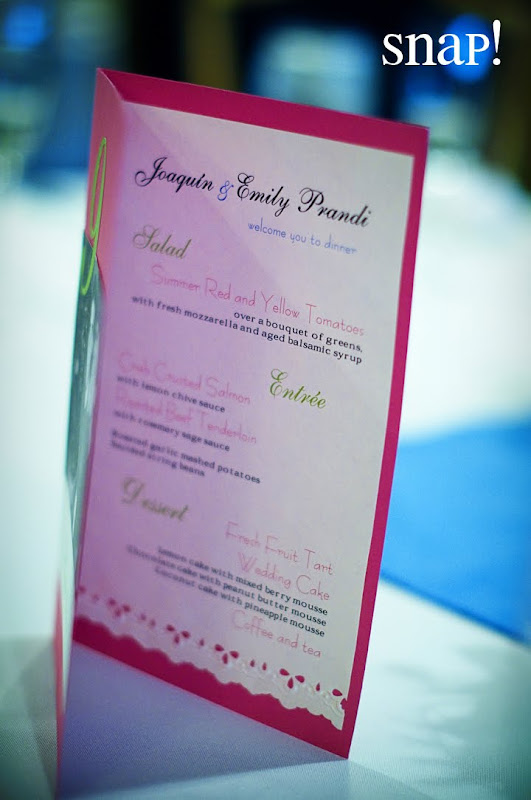 snaP!
Joaquín & Emily Prandi
welcome you to dinner
Salad
Summer Red and Yellow Tomatoes
over a bouquet of greens,
with fresh mozzarella and aged balsamic syrup
Entrée
Crab Crusted Salmon
with lemon chive sauce
Roasted Beef Tenderloin
with rosemary sage sauce
Roasted garlic mashed potatoes
string beans
Dessert
Fresh Fruit Tart
Wedding Cake
Lemon cake with mixed berry mousse
Chocolate cake with peanut butter mousse
Coconut cake with pineapple mousse
Coffee and tea